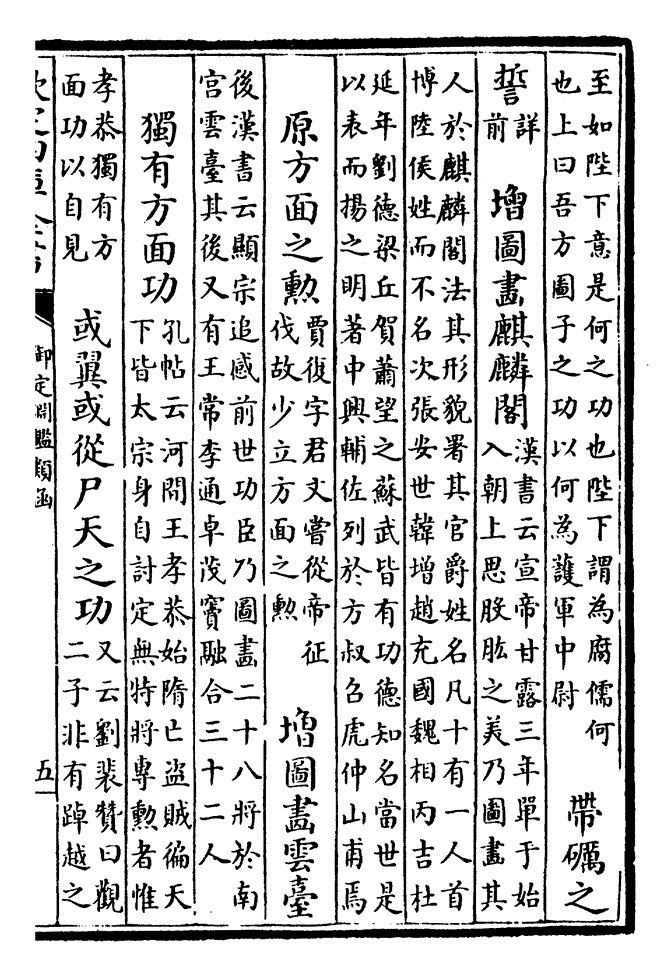 至如陛下意是何之功也陛下謂為腐儒何
也上曰吾方圖子之功以何為護軍中尉
帶礪之
誓
詳
前
增圖畫麒麟閣
漢書云宣帝甘露三年單于始
入朝上思股肱之美乃圖畫其
人於麒麟閣法其形貌署其官爵姓名凡十有一人首
博陸侯姓而不名次張安世韓增趙充國魏相丙吉杜
延年劉德梁丘賀蕭望之蘇武皆有功德知名當世是
以表而揚之明著中興輔佐列於方叔召虎仲山甫焉
原方面之勲
賈復字君文嘗從帝征
伐故少立方面之勲
增圖畫雲臺
後漢書云顯宗追感前世功臣乃圖畫二十八將於南
宮雲臺其後又有王常李通卓茂竇融合三十二人
獨有方面功
孔帖云河間王孝恭始隋亡盜賊徧天
下皆太宗身自討定無特將專勲者惟
孝恭獨有方
面功以自見
或翼或從尸天之功
又云劉裴贊曰觀
二子非有踔越之
御定淵鑑類函
五